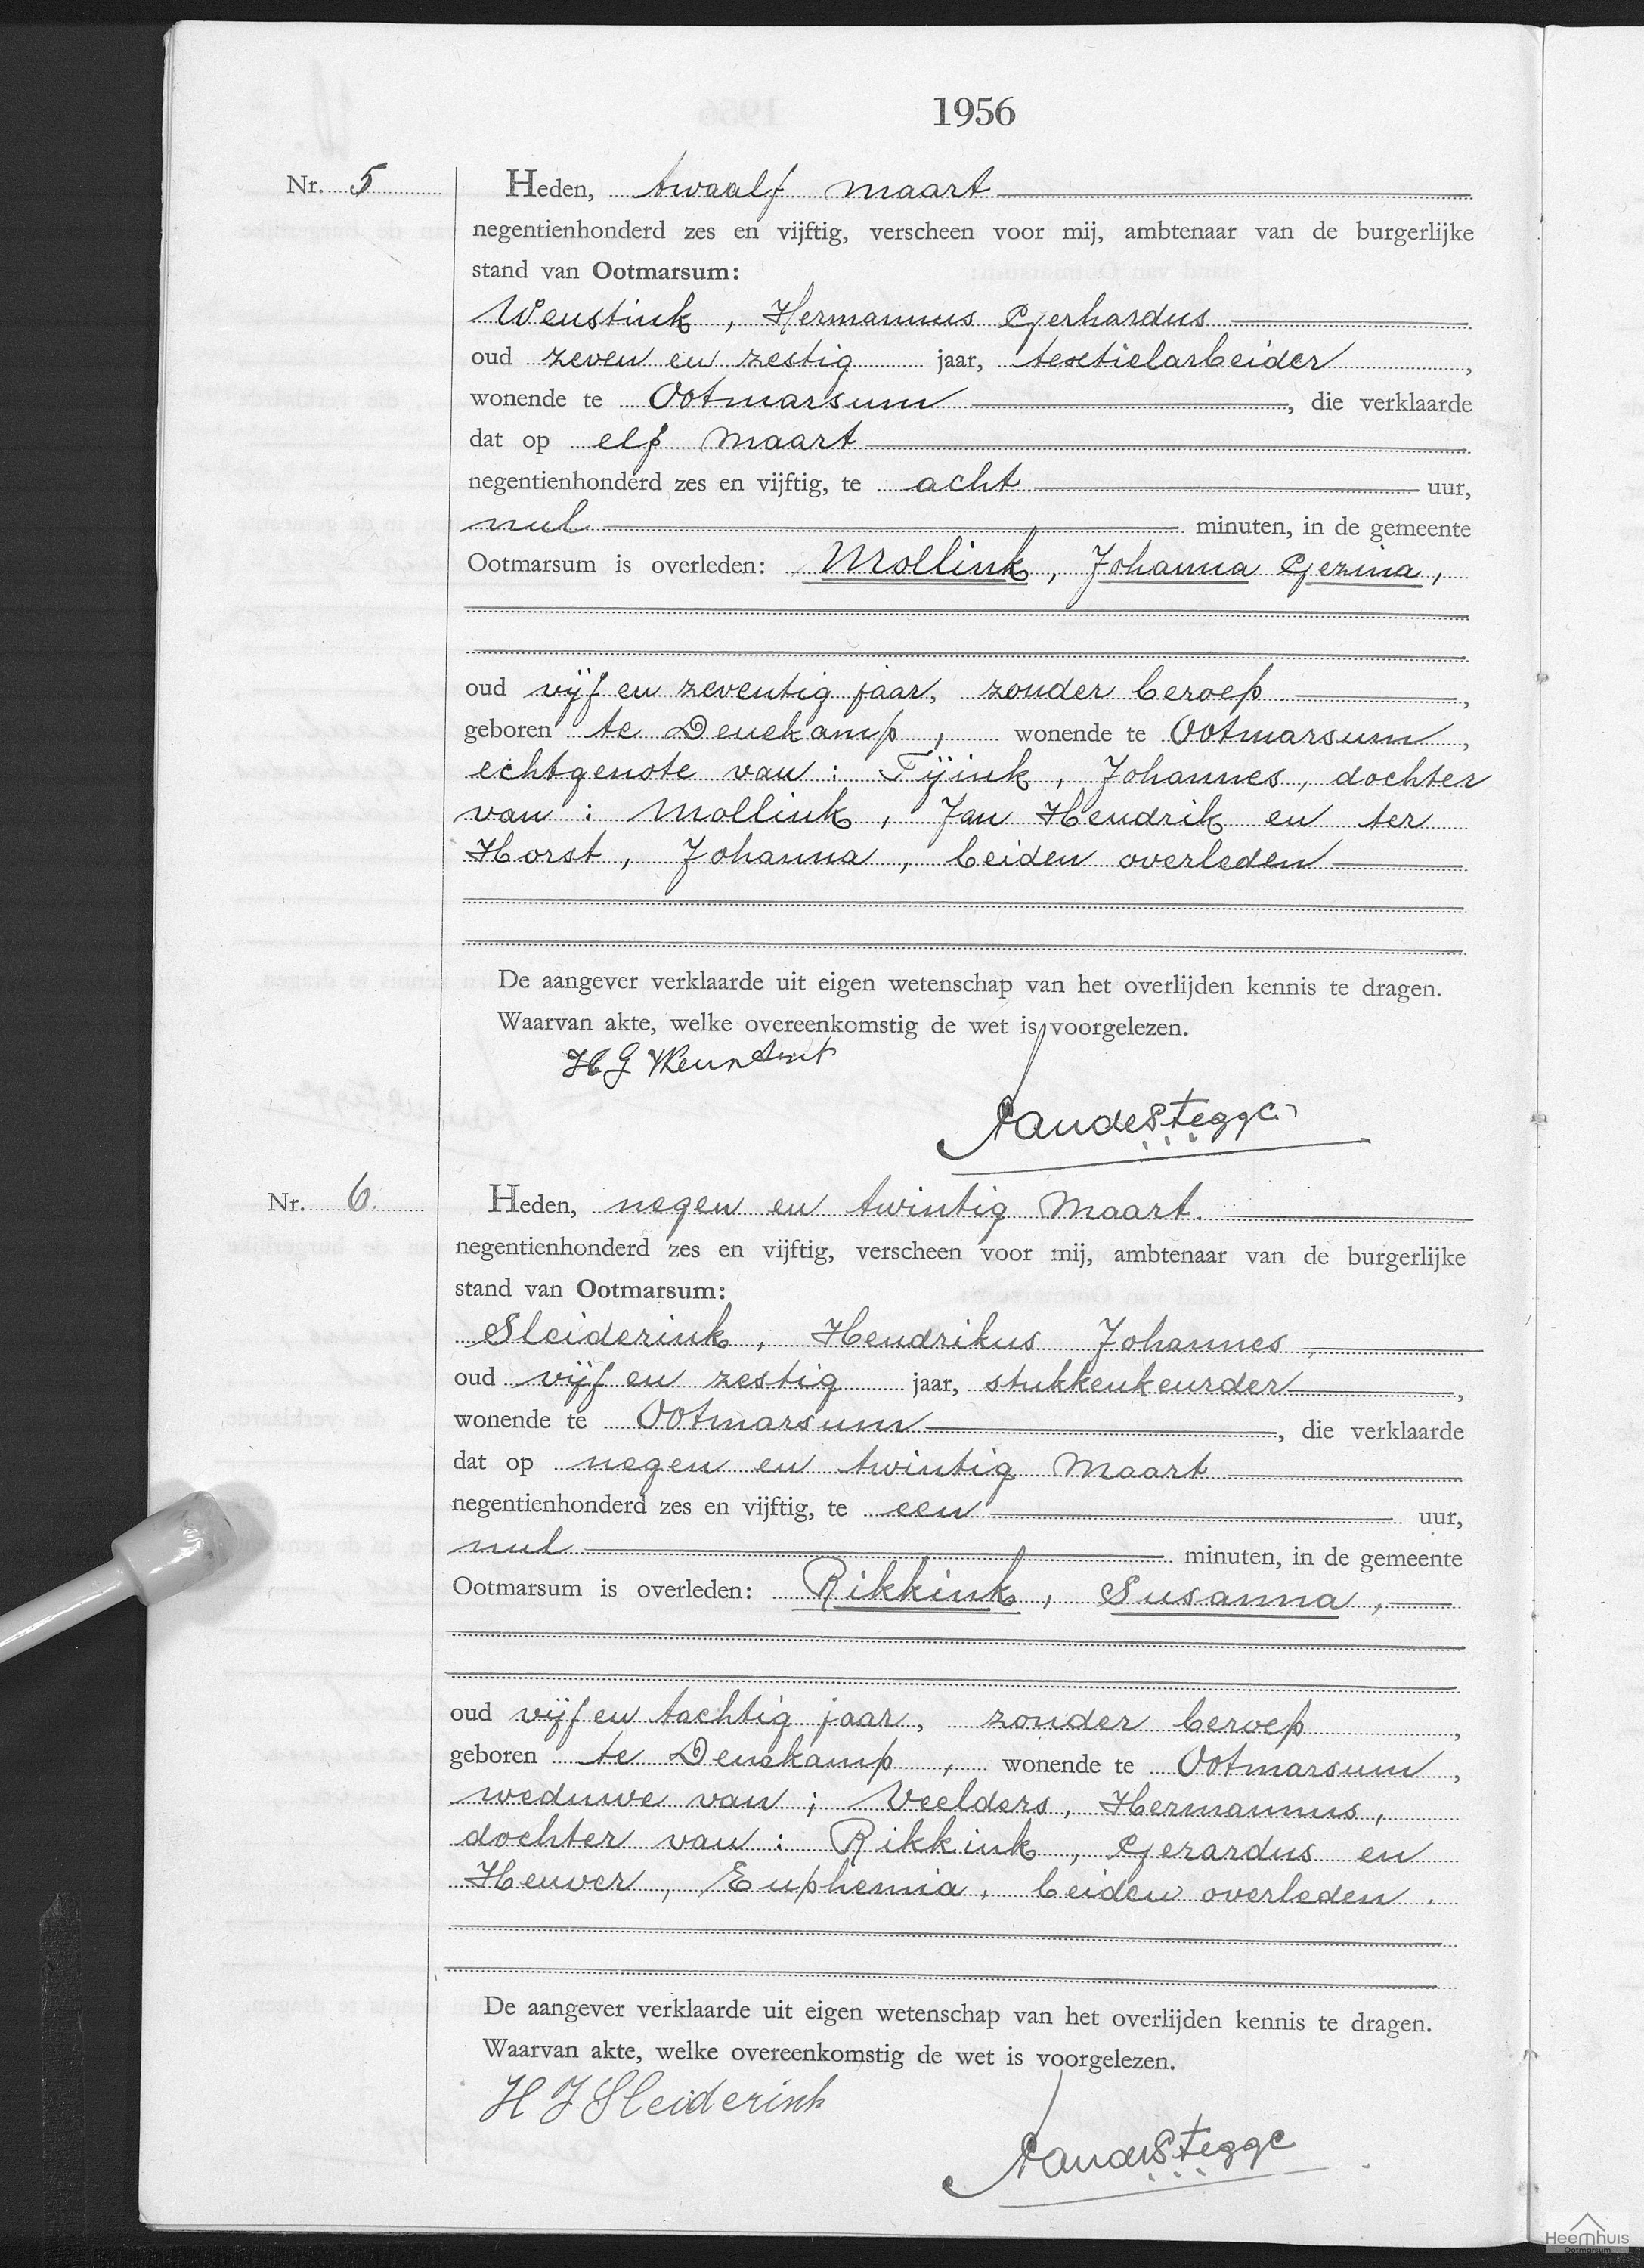 1956
Nr. 5
Heden, twaalf maart
negentienhonderd zes en vijftig, verscheen voor mij, ambtenaar van de burgerlijke
stand van Ootmarsum:
Weustink, Hermannus Gerhardus
oud zeven en zestig jaar, textielarbeider,
wonende te Ootmarsum, die verklaarde
dat op elf maart
negentienhonderd zes en vijftig, te acht uur,
nul minuten, in de gemeente
Ootmarsum is overleden: Mollink, Johanna Gezina,
oud vijf en zeventig jaar, zonder beroep,
geboren te Denekamp, wonende te Ootmarsum,
echtgenote van: Tijink, Johannes, dochter
van: Mollink, Jan Hendrik en ter
Horst, Johanna, beiden overleden
De aangever verklaarde uit eigen wetenschap van het overlijden kennis te dragen.
Waarvan akte, welke overeenkomstig de wet is voorgelezen.
H G
Nr. 6.
Heden, negen en twintig Maart.
negentienhonderd zes en vijftig, verscheen voor mij, ambtenaar van de burgerlijke
stand van Ootmarsum:
Sleiderink, Hendrikus Johannes,
oud vijf en zestig jaar, stukkenkeurder,
wonende te Ootmarsum, die verklaarde
dat op negen en twintig Maart
negentienhonderd zes en vijftig, te een uur,
nul minuten, in de gemeente
Ootmarsum is overleden: Rikkink, Susanna,
oud vijf en tachtig jaar, zonder beroep,
geboren te Denekamp, wonende te Ootmarsum,
weduwe van; Veelders, Hermannus,
dochter van: Rikkink, Gerardus en
Heuver, Euphemia, beiden overleden.
De aangever verklaarde uit eigen wetenschap van het overlijden kennis te dragen.
Waarvan akte, welke overeenkomstig de wet is voorgelezen.
H J Sleiderink
Heemhuis
Ootmarsum